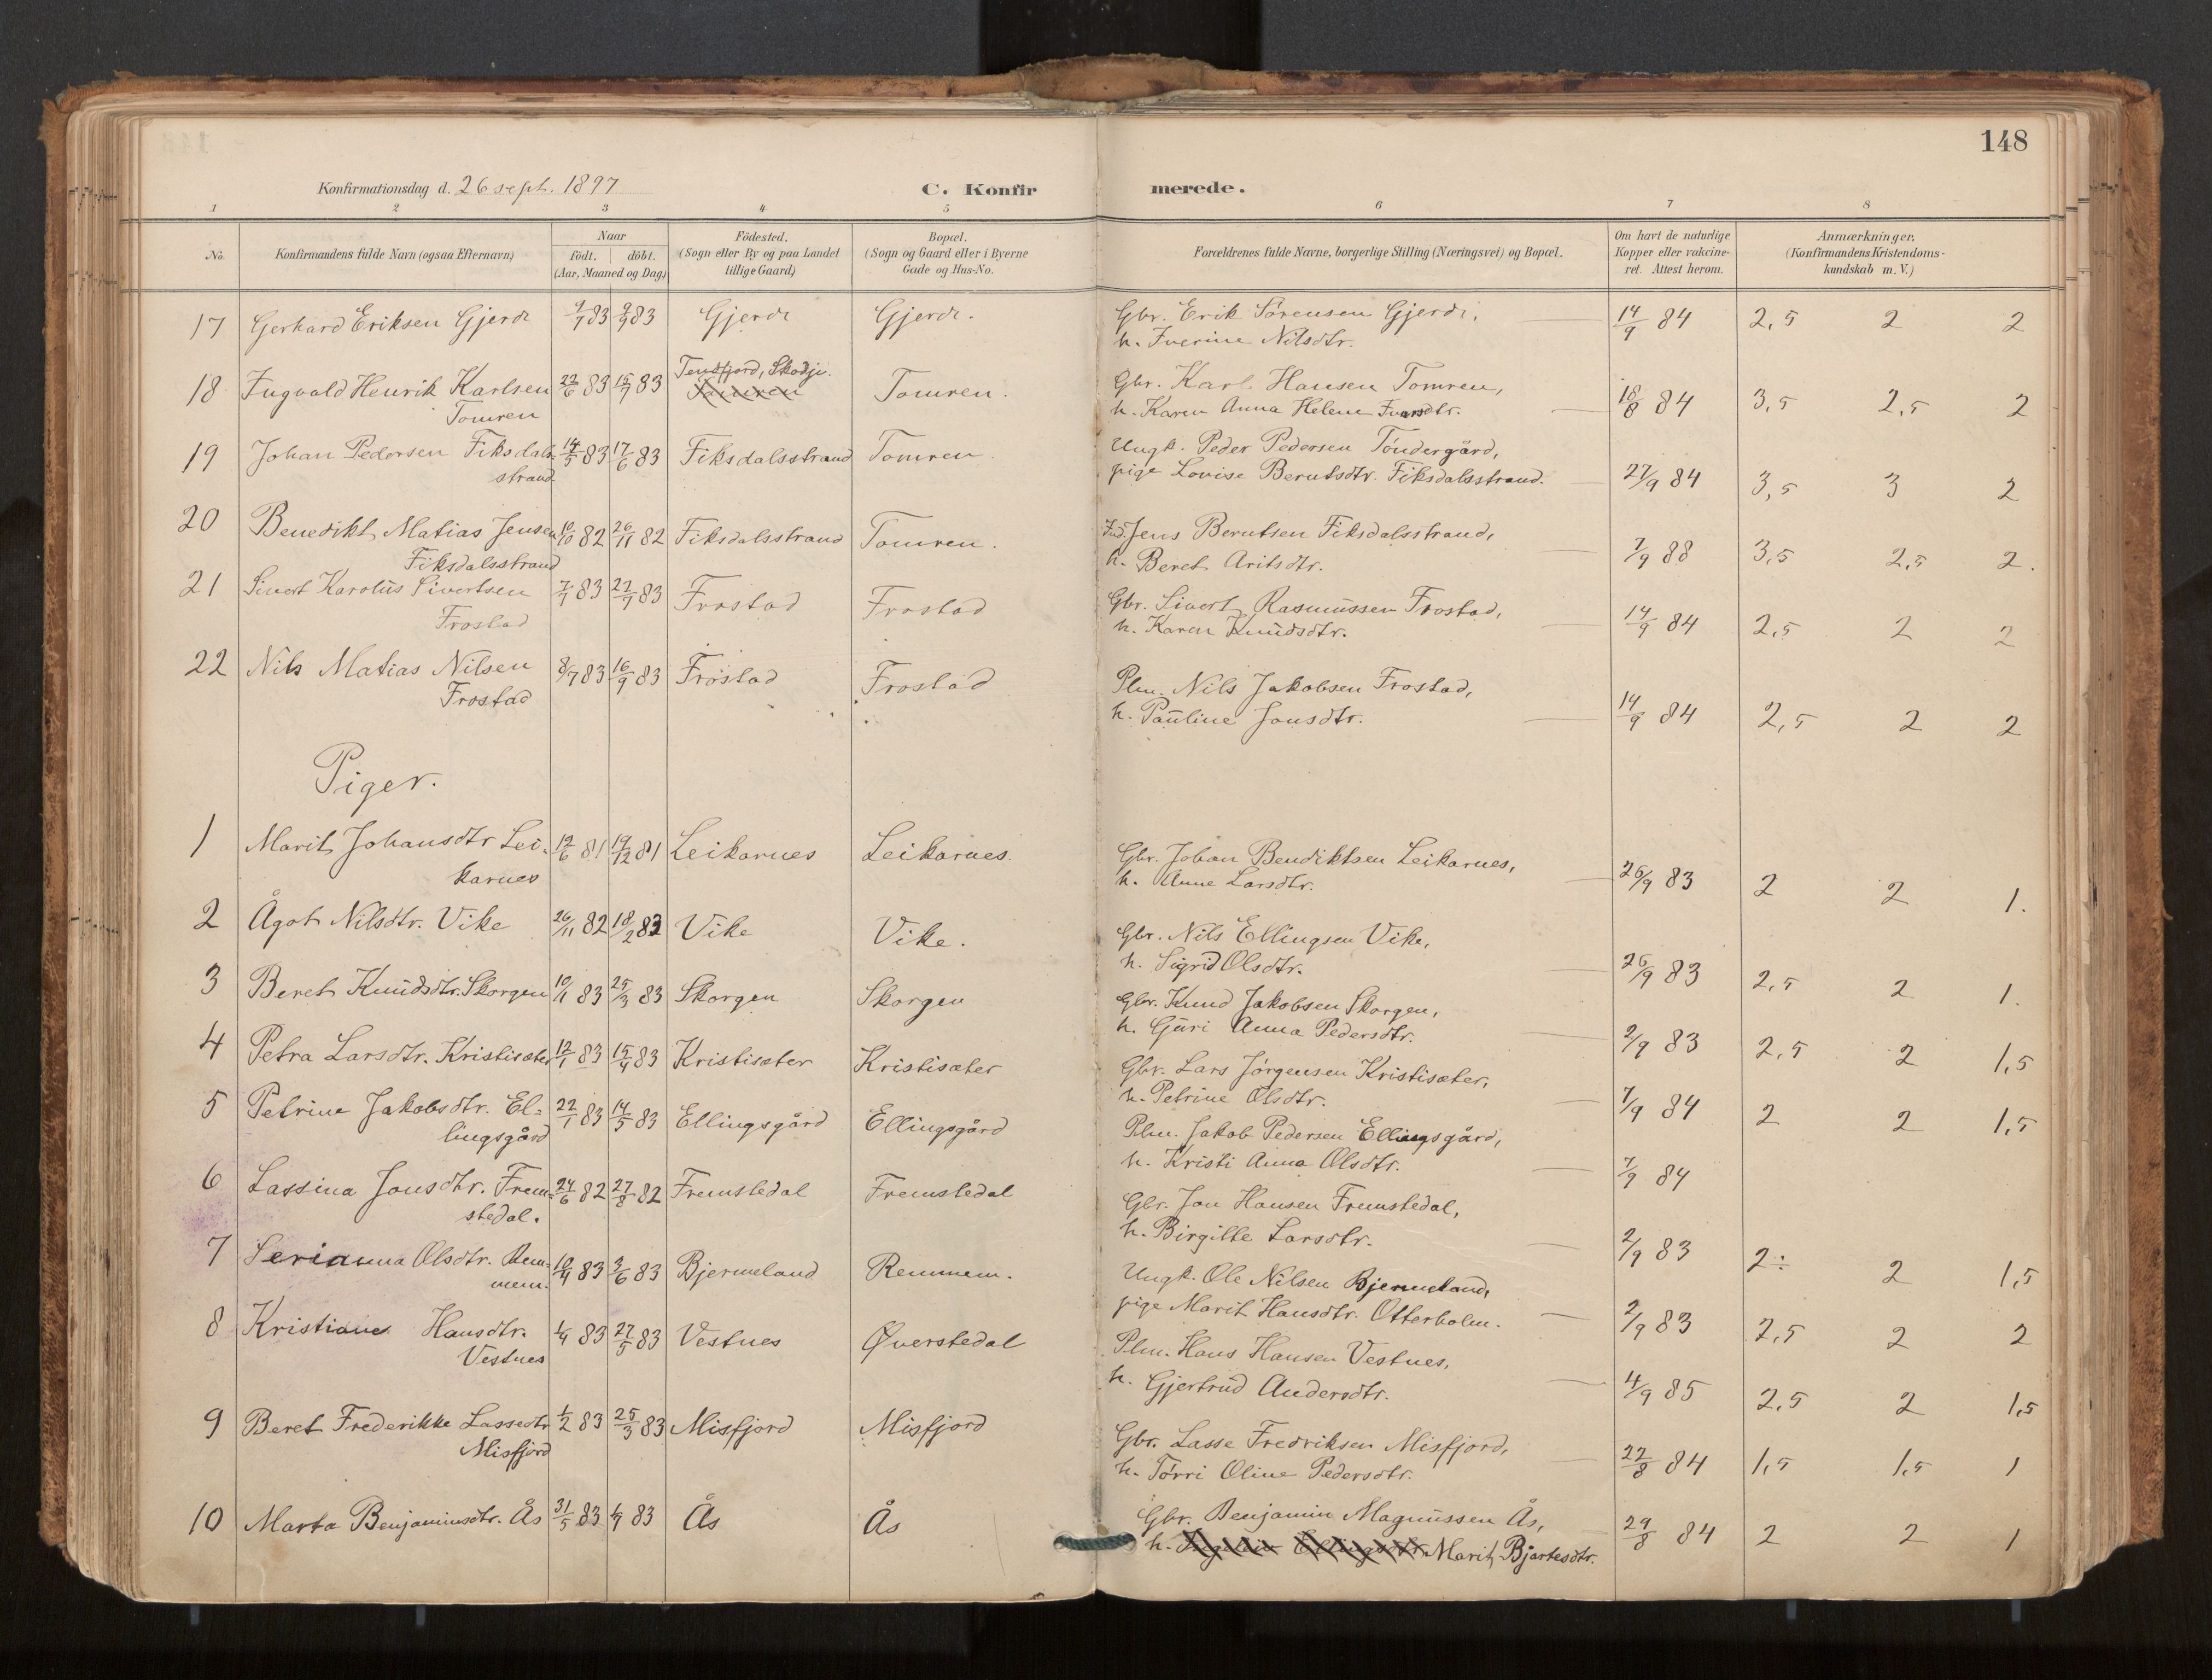 148
Konfirmationsdag d. 26 sept. 1897
C. Konfirmerede.
1 2 3 4 5 6 7 8
No.
Konfirmandens fulde Navn (ogsaa Efternavn)
Naar
født. døbt.
(Aar, Maaned og Dag)
Fødested.
(Sogn eller By og paa Landet
tillige Gaard)
Bopæl.
(Sogn og Gaard eller i Byerne
Gade og Hus-No.
Forældrenes fulde Navne, borgerlige Stilling (Næringsvei) og Bopæl.
Om havt de naturlige
Kopper eller vakcine-
ret. Attest herom.
Anmærkninger.
(Konfirmandens Kristendoms-
kundskab m. V.)
17 Gerhard Eriksen Gjerde 9/7 83 9/9 83 Gjerde Gjerde. Gbr. Erik Sørensen Gjerde, 14/9 84 2,5 2 2
h. Iverine Nilsdtr.
18 Ingvald Henrik Karlsen 22/6 83 15/7 83 Tensfjord, Skodje. Tomren Tomren. Gbr. Karl Hansen Tomren, 18/8 84 3,5 2,5 2
Tomren h. Karen Anna Helene Ivarsdtr.
19 Johan Pedersen Fiksdals- 14/5 83 17/6 83 Fiksdalsstrand Tomren. Ungk. Peder Pedersen Tøndergård, 27/9 84 3,5 3 2
strand pige Lovise Berntsdtr. Fiksdalsstrand.
20 Benedikt Matias Jensen 10/10 82 26/11 82 Fiksdalsstrand Tomren. Ind. Jens Berntsen Fiksdalsstrand, 7/9 88 3,5 2,5 2.
Fiksdalsstrand h. Beret Aritsdtr.
21 Sivert Karolus Sivertsen 7/7 83 22/7 83 Frostad Frostad Gbr. Sivert Rasmussen Frostad, 14/9 84 2,5 2 2
Frostad h. Karen Knudsdtr.
22 Nils Matias Nilsen 8/7 83 16/9 83 Frostad Frostad Plm. Nils Jakobsen Frostad, 14/9 84 2,5 2 2
Frostad h. Pauline Jonsdtr.
Piger.
1 Marit Johansdtr Lei- 12/6 81 19/12 81 Leikarnes Leikarnes. Gbr. Johan Bendiktsen Leikarnes, 26/9 83 2 2 1.
karnes h. Anne Larsdtr.
2 Ågot Nilsdtr. Vike 26/11 82 18/2 83 Vike Vike. Gbr. Nils Ellingsen Vike, 26/9 83 2,5 2 1.
h. Sigrid Olsdtr.
3 Beret Knudsdtr. Skorgen 10/1 83 25/3 83 Skorgen Skorgen Gbr. Knud Jakobsen Skorgen, 2/9 83 2,5 2 1,5
h. Guri Anna Pedersdtr.
4 Petra Larsdtr. Kristisæter 12/1 83 15/4 83 Kristisæter Kristisæter Gbr. Lars Jørgensen Kristisæter, 7/9 84 2 2 1,5
h. Petrine Olsdtr.
5 Petrine Jakobsdtr. El- 22/1 83 14/5 83 Ellingsgård Ellingsgård Plm. Jakob Pedersen Ellingsgård, 7/9 84
lingsgård h. Kristi Anna Olsdtr.
6 Lassina Jonsdtr. Frem- 24/6 82 27/8 82 Fremstedal Fremstedal Gbr. Jon Hansen Fremstedal, 2/9 83 2÷ 2 1,5
stedal. h. Birgitte Larsdtr.
7 Serianna Olsdtr. Rem- 10/4 83 3/6 83 Bjermeland Remmem. Ungk. Ole Nilsen Bjermeland, 2/9 83 2,5 2 2
mem. pige Marit Hansdtr. Otterholm.
8 Kristiane Hansdtr. 1/4 83 27/5 83 Vestnes Øverstedal Plm. Hans Hansen Vestnes, 4/9 85 2,5 2 1,5
Vestnes h. Gjertrud Andersdtr.
9 Beret Frederikke Lassedtr 1/2 83 25/3 83 Misfjord Misfjord Gbr. Lasse Fredriksen Misfjord, 22/8 84 1,5 1,5 1
Misfjord h. Tørri Oline Pedersdtr.
10 Marta Benjaminsdtr. Ås 31/5 83 1/7 83 Ås Ås Gbr. Benjamin Magnussen Ås, 29/8 84 2 2 1
h. Marit Bjartesdtr.